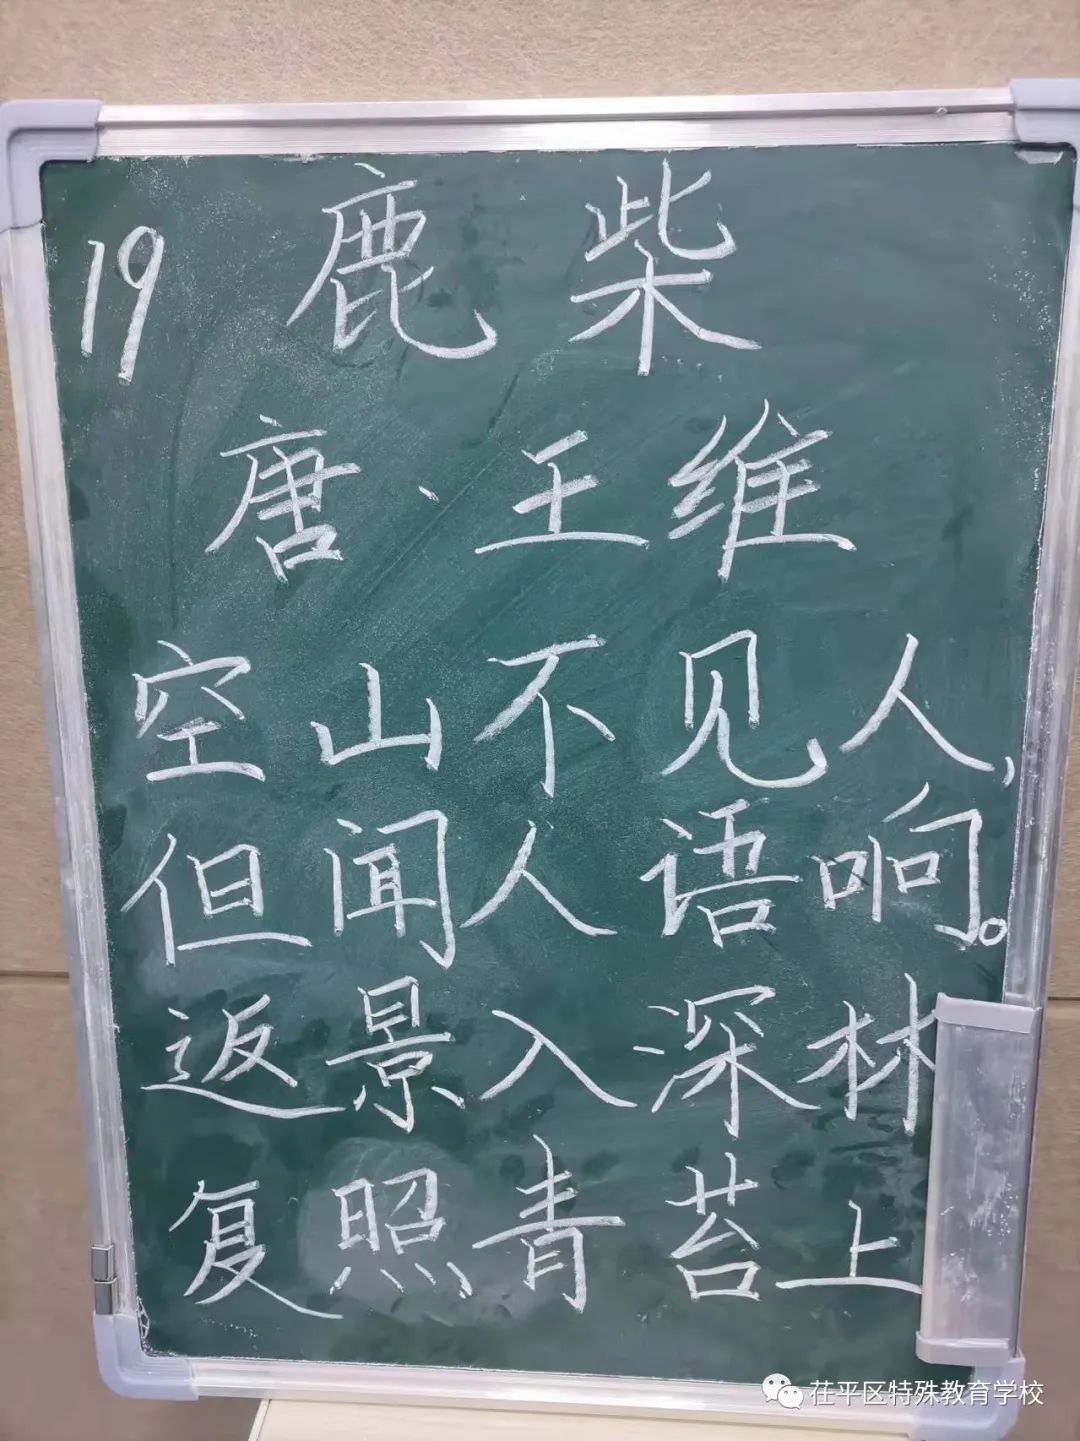 19 鹿柴
唐、王维
空山不见人,
但闻人语响。
返景入深林
复照青苔上
茌平区特殊教育学校